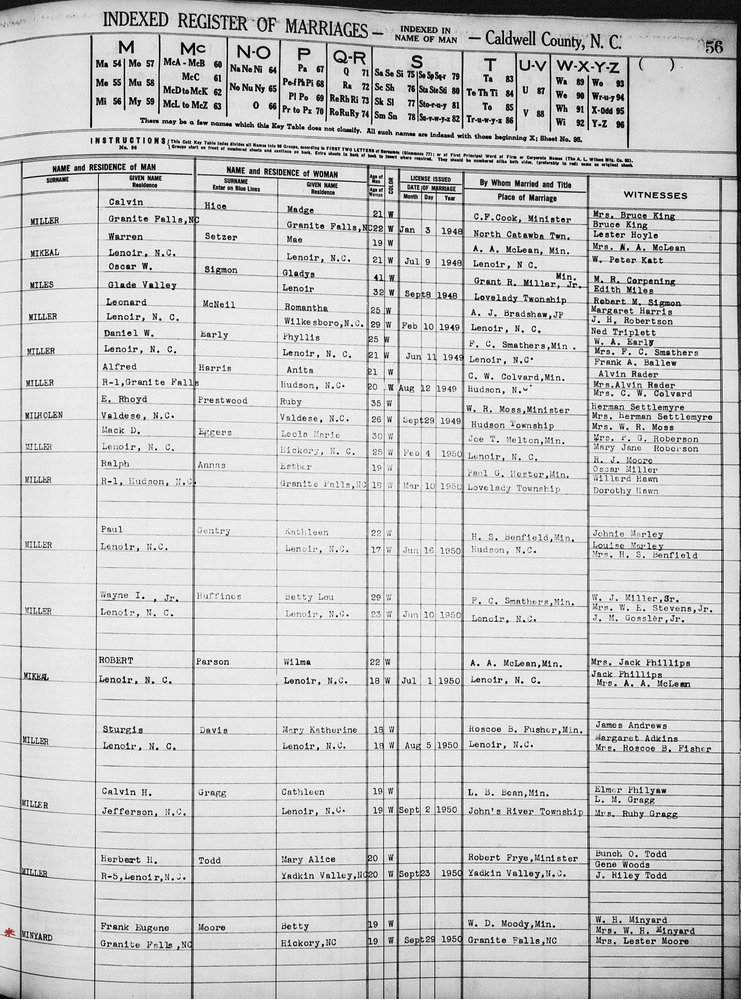 INDEXED REGISTER OF MARRIAGES — INDEXED IN NAME OF MAN — Caldwell County, N. C. 56
M Mc N-O P Q-R S T U-V W-X-Y-Z ( )
Ma 54 Mo 57 McA - McB 60 Na Ne Ni 64 Pa 67 Q 71 Sa Se Si 75 So Sp Sq-r 79 Ta 83 Wa 89 Wo 93
Me 55 Mu 58 McC 61 Pe-f Ph Pi 68 Ra 72 Sc Sh 76 Sta Ste Sti 80 Te Th Ti 84 U 87 We 90 Wr-u-y 94
McD to McK 62 No Nu Ny 65 Pl Po 69 Re Rh Ri 73 Sk Sl 77 Sto-r-u-y 81 To 85 Wh 91 X-Odd 95
Mi 56 My 59 McL to McZ 63 O 66 Pr to Pz 70 Ro Ru Ry 74 Sm Sn 78 Su-v-w-y-z 82 Tr-u-w-y-z 86 V 88 Wi 92 Y-Z 96
There may be a few names which this Key Table does not classify. All such names are indexed with those beginning X; Sheet No. 95.
INSTRUCTIONS
NAME and RESIDENCE of MAN NAME and RESIDENCE of WOMAN Age of Man COLOR LICENSE ISSUED By Whom Married and Title WITNESSES
SURNAME GIVEN NAME Residence SURNAME Enter on Blue Lines GIVEN NAME Residence Age of Woman DATE OF MARRIAGE Month Day Year Place of Marriage
Calvin Hice Madge 21 W C.F.Cook, Minister Mrs. Bruce King
MILLER Granite Falls,NC Granite Falls,NC 22 W Jan 3 1948 North Catawba Twn. Bruce King
Lester Hoyle
Warren Setzer Mae 19 W A. A. McLean, Min. Mrs. A. A. McLean
MIKEAL Lenoir, N.C. Lenoir, N.C. 21 W Jul 9 1948 Lenoir, N C. W. Peter Katt
Oscar W. Sigmon Gladys 41 W Grant R. Miller, Jr. Min. M. R. Corpening
MILES Glade Valley Lenoir 32 W Sept8 1948 Lovelady Twonship Edith Miles
Robert M. Sigmon
Leonard McNeil Romantha 25 W A. J. Bradshaw,JP Margaret Harris
MILLER Lenoir, N.C. Wilkesboro,N.C. 29 W Feb 10 1949 Lenoir, N. C. J. H. Robertson
Ned Triplett
Daniel W. Early Phyllis 25 W F. C. Smathers,Min. W. A. Early
MILLER Lenoir, N. C. Lenoir, N. C. 21 W Jun 11 1949 Lenoir, N.C. Mrs. F. C. Smathers
Frank A. Ballew
Alfred Harris Anita 21 W C. W. Colvard,Min. Alvin Rader
MILLER R-1,Granite Falls Hudson, N.C. 20 W Aug 12 1949 Hudson, N.C Mrs.Alvin Rader
Mrs. C. W. Colvard
E. Rhoyd Prestwood Ruby 35 W W. R. Moss,Minister Herman Settlemyre
MILHOLEN Valdese, N.C. Valdese, N.C. 26 W Sept29 1949 Hudson Township Mrs. Herman Settlemyre
Mrs. W. R. Moss
Mack D. Eggers Leola Marie 30 W Joe T. Melton,Min. Mrs. F. G. Roberson
MILLER Lenoir, N. C. Hickory, N. C. 25 W Feb 4 1950 Lenoir, N. C. Mary Jane Roberson
R. J. Moore
Ralph Annas Esther 19 W Paul G. Hester,Min. Oscar Miller
MILLER R-1, Hudson, N.C. Granite Falls,NC 18 W Mar 10 1950 Lovelady Township Willard Hawn
Dorothy Hawn
Paul Gentry Kathleen 22 W H. S. Benfield,Min. Johnie Marley
MILLER Lenoir, N.C. Lenoir, N.C. 17 W Jun 16 1950 Hudson, N.C. Louise Marley
Mrs. H. S. Benfield
Wayne I. , Jr. Huffines Betty Lou 29 W F. C. Smathers,Min. W. J. Miller,Sr.
MILLER Lenoir, N. C. Lenoir, N.C. 23 W Jun 10 1950 Lenoir, N.C. Mrs. W. E. Stevens,Jr.
J. M. Gossler,Jr.
ROBERT Parson Wilma 22 W A. A. McLean,Min. Mrs. Jack Phillips
MIKEAL Lenoir, N. C. Lenoir, N.C. 18 W Jul 1 1950 Lenoir, N. C. Jack Phillips
Mrs. A. A. McLean
Sturgis Davis Mary Katherine 18 W Roscoe B. Fusher,Min. James Andrews
MILLER Lenoir, N. C. Lenoir, N.C. 18 W Aug 5 1950 Lenoir, N.C. Margaret Adkins
Mrs. Roscoe B. Fisher
Calvin H. Gragg Cathleen 19 W L. B. Bean,Min. Elmer Philyaw
MILLER Jefferson, N.C. Lenoir, N.C. 19 W Sept 2 1950 John's River Township L. M. Gragg
Mrs. Ruby Gragg
Herbert H. Todd Mary Alice 20 W Robert Frye,Minister Bunch O. Todd
MILLER R-5,Lenoir,N.C. Yadkin Valley,NC 20 W Sept23 1950 Yadkin Valley,N.C. Gene Woods
J. Riley Todd
Frank Eugene Moore Betty 19 W W. D. Moody,Min. W. H. Minyard
* MINYARD Granite Falls,NC Hickory,NC 19 W Sept29 1950 Granite Falls,NC Mrs. W. H. Minyard
Mrs. Lester Moore